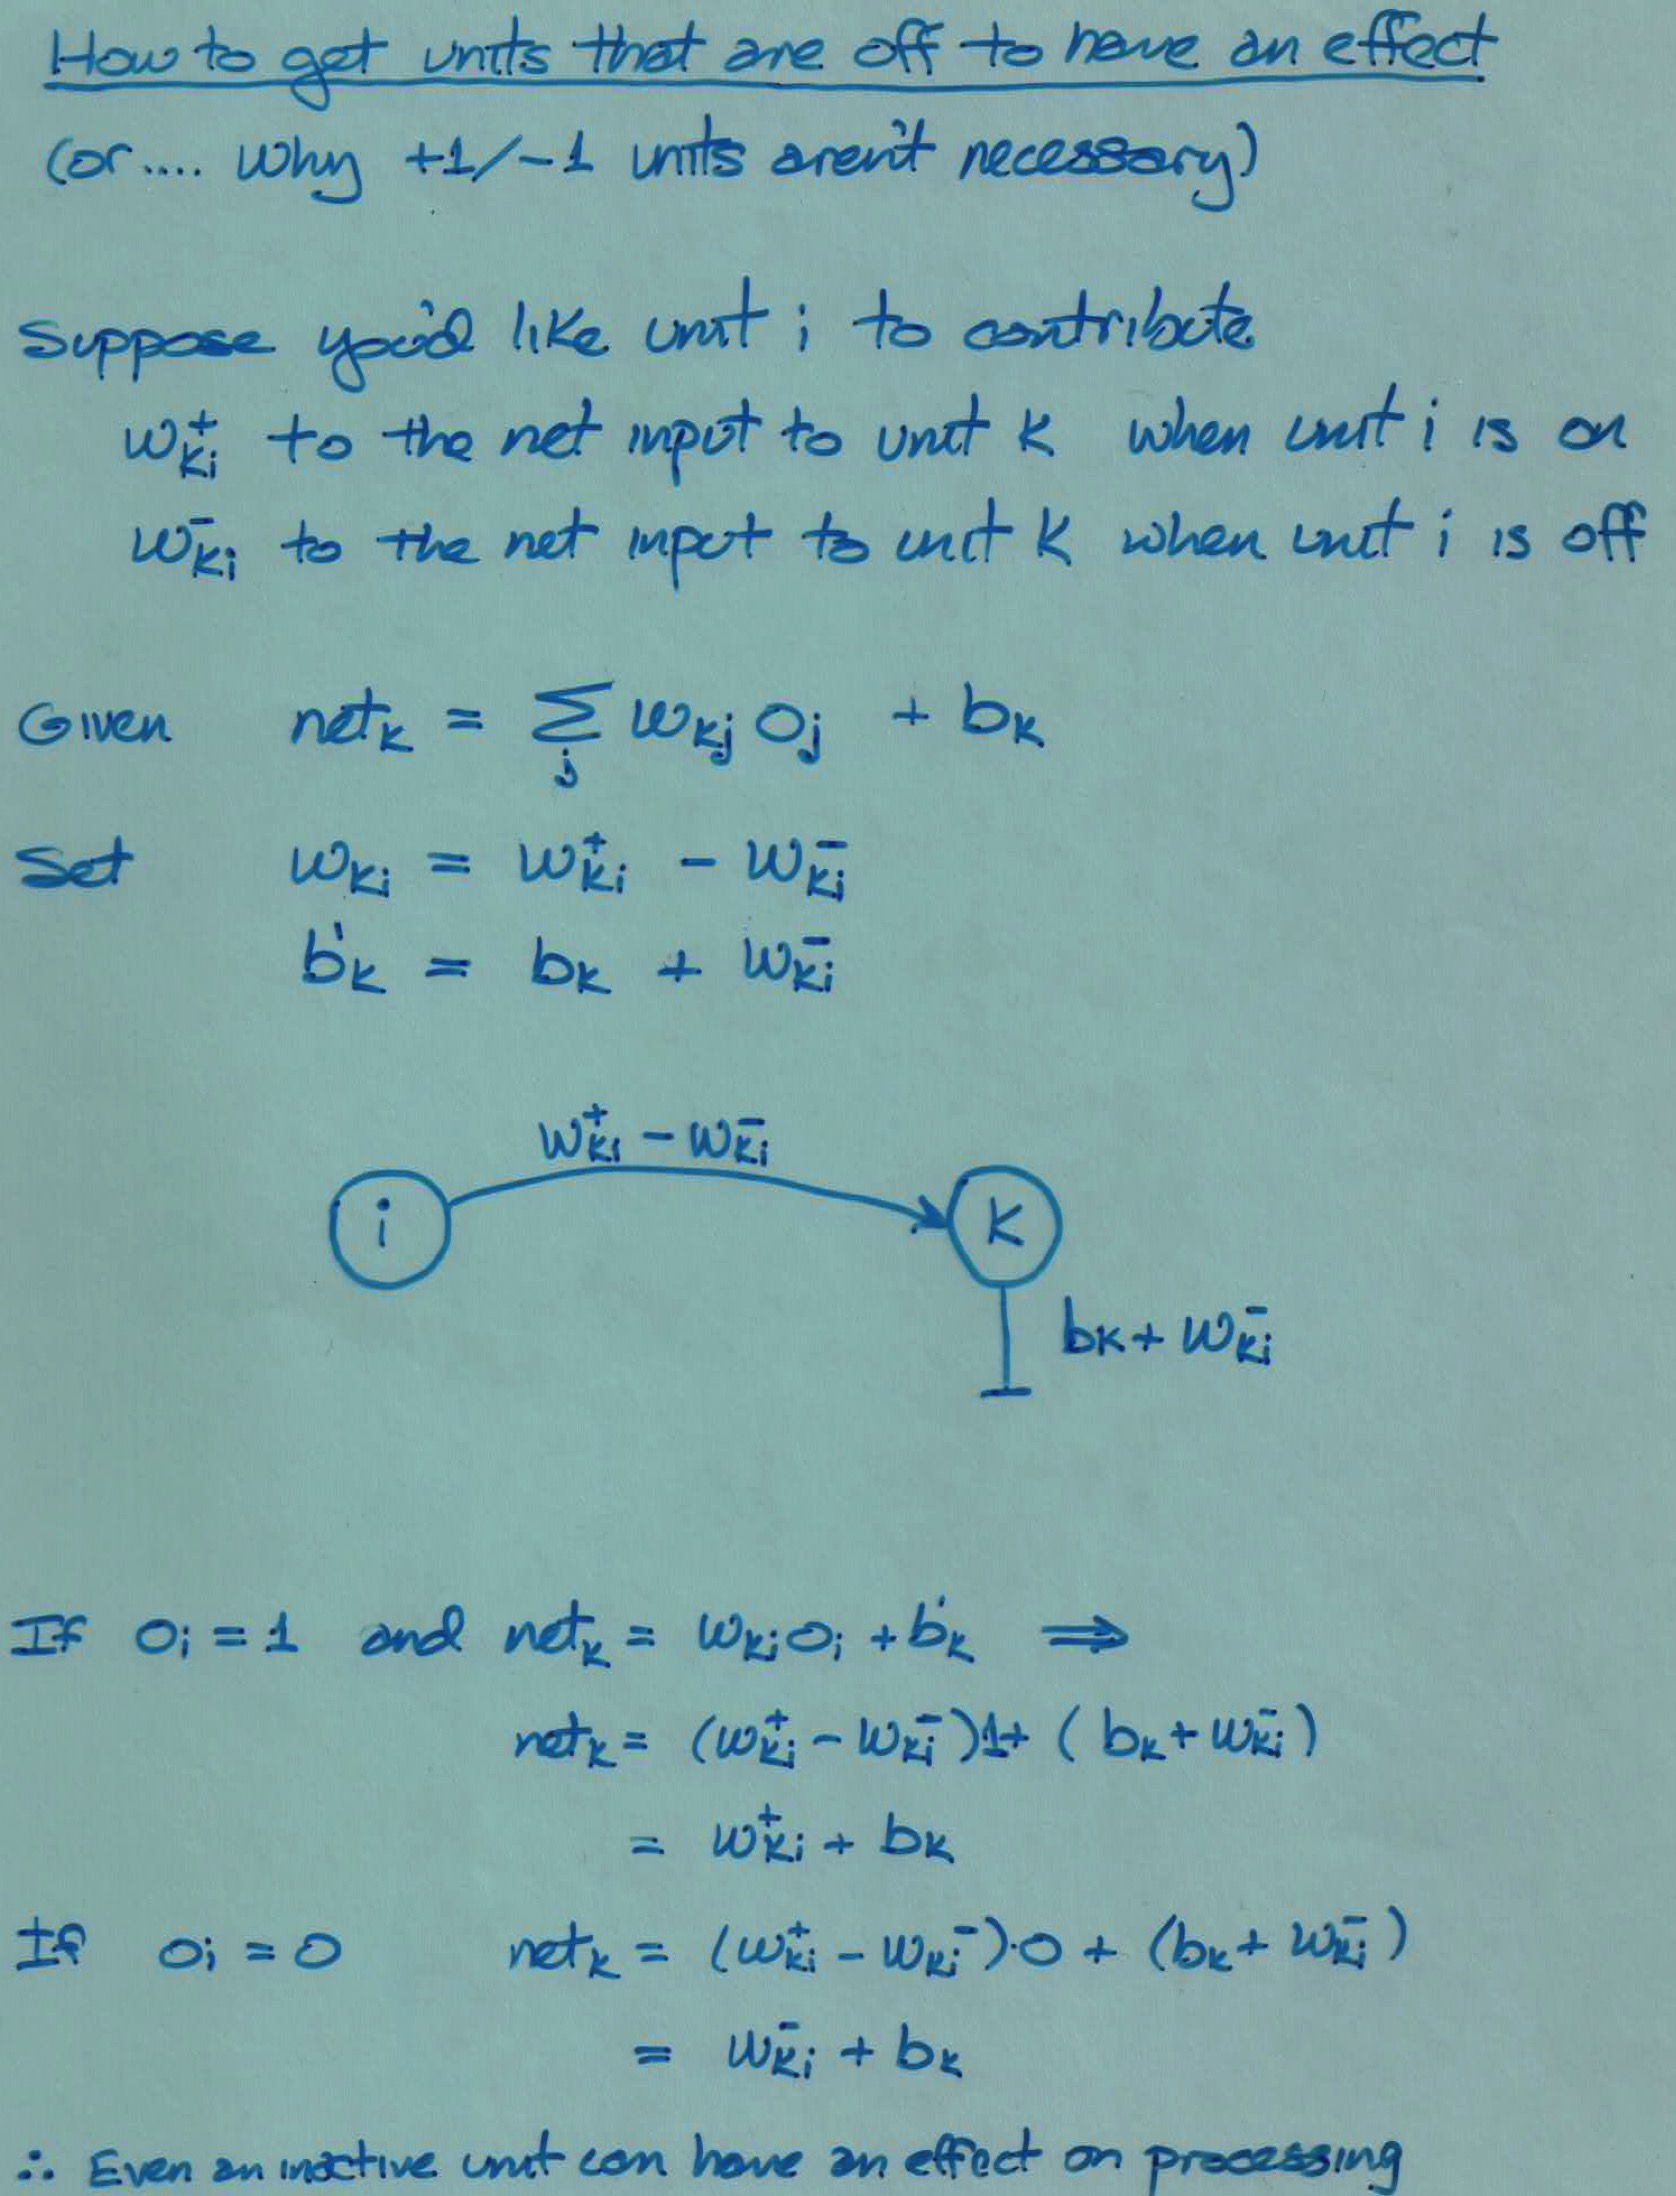 How to get units that are off to have an effect
(or.... why +1/-1 units aren't necessary)
Suppose you'd like unit i to contribute
w⁺ₖᵢ to the net input to unit k when unit i is on
w⁻ₖᵢ to the net input to unit k when unit i is off
Given netₖ = Σⱼ wₖⱼ oⱼ + bₖ
Set wₖᵢ = w⁺ₖᵢ - w⁻ₖᵢ
b'ₖ = bₖ + w⁻ₖᵢ
w⁺ₖᵢ - w⁻ₖᵢ
i k
bₖ + w⁻ₖᵢ
If oᵢ = 1 and netₖ = wₖᵢoᵢ + b'ₖ ⇒
netₖ = (w⁺ₖᵢ - w⁻ₖᵢ)1+ (bₖ + w⁻ₖᵢ)
= w⁺ₖᵢ + bₖ
If oᵢ = 0 netₖ = (w⁺ₖᵢ - wₖᵢ⁻)·0 + (bₖ + w⁻ₖᵢ)
= w⁻ₖᵢ + bₖ
∴ Even an inactive unit can have an effect on processing